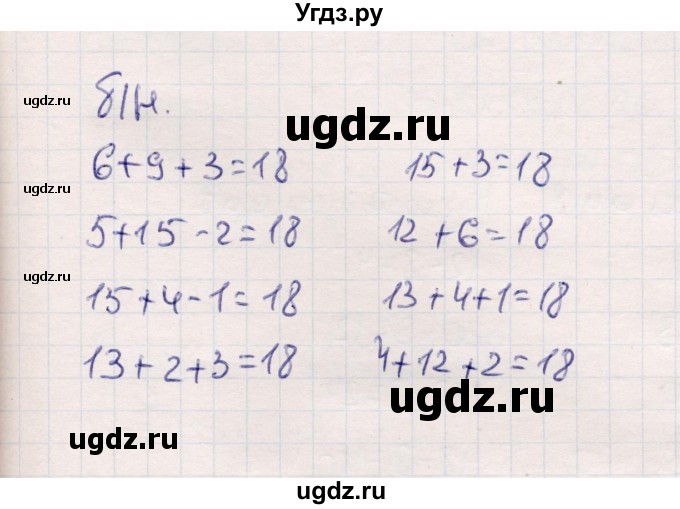 Угдз.ру
ugdz.ru
б/н.
ugdz.ru
6+9+3=18 15+3=18
ugdz.ru
5+15-2=18 12+6=18
ugdz.ru
15+4-1=18 13+4+1=18
13+2+3=18 4+12+2=18
ugdz.ru
ugdz.ru
ugdz.ru